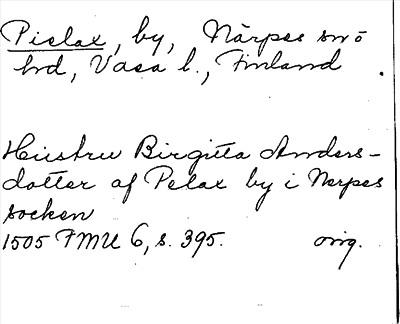 Pielax, by, Närpes sn o
hrd, Vasa l., Finland.
Hustru Birgitta Anders-
dotter af Pelax by i Nerpes
socken
1505 FMU 6, s. 395. orig.